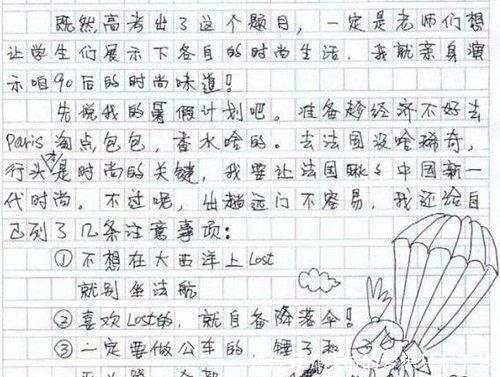 既然高考出了这个题目，一定是老师们想
让学生们展示下各自的时尚生活，我就亲身演
示咱90后的时尚味道！
先说我的暑假计划吧。准备趁经济不好去
Paris淘点包包，香水啥的。去法国没啥稀奇，
行头才是时尚的关键，我要让法国瞅瞅中国新一
代时尚。不过呢，出趟远门不容易，我还给自
己列了几条注意事项：
①不想在大西洋上Lost
就别坐法航
②喜欢Lost的，就自备降落伞！
③一定要做公车的，锤子和